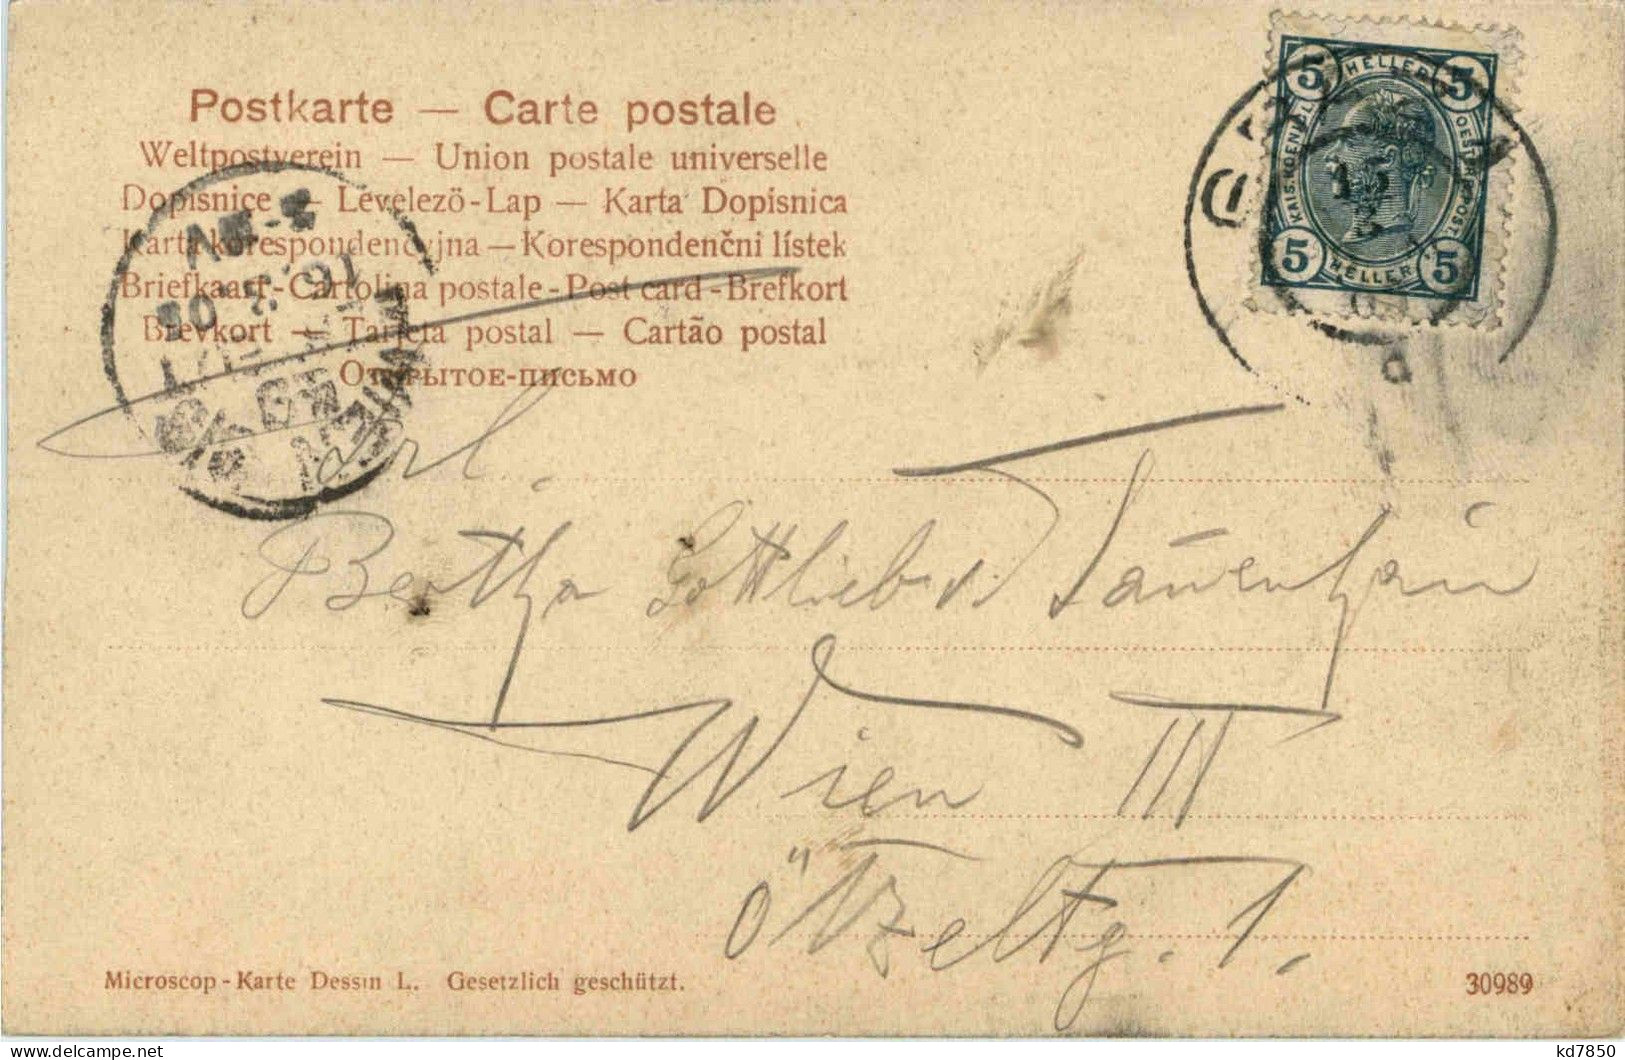 Postkarte — Carte postale
Weltpostverein — Union postale universelle
Dopisnice — Levelező-Lap — Karta Dopisnica
Karta korespondencyjna — Korespondenčni listek
Briefkaart - Cartolina postale - Post card - Brefkort
Brevkort — Tarjeta postal — Cartão postal
Открытое-письмо
5 HELLER 5
KAIS. KOENIGL. OESTERR. POST
5 HELLER 5
15
3
d
WIEN
Frl.
Bertha Gottlieb v. Tauenhain
Wien III
Ötzeltg. 1.
Microscop - Karte Dessin L. Gesetzlich geschützt.
30989
kd7850